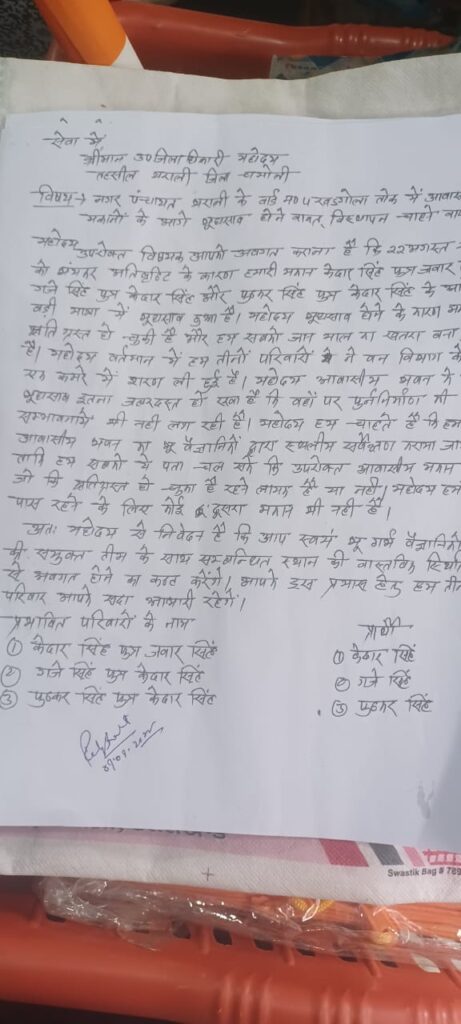 सेवा में
श्रीमान उपजिलाधिकारी महोदय
तहसील थराली जिला चमोली
विषय→ नगर पंचायत थराली के वार्ड न0 4 तोक में आवास
मकानों के आगे भूधसाव होने बावत विस्थापन चाहने
महोदय
उपरोक्त विषयक आपको अवगत कराना है कि 22 अगस्त
को भंयकर अतिवृष्टि के कारण हमारी मकान केदार सिंह पुत्र जवार
गजे सिंह पुत्र केदार सिंह और पुष्कर सिंह पुत्र केदार सिंह के
बड़ी मात्रा में भूधसाव हुआ है। महोदय भूधसाव होने के कारण
क्षति ग्रस्त हो चुकी है और हम सबको जान माल का खतरा बना
है। महोदय वर्तमान में हम तीनों परिवारों ने वन विभाग के
एक कमरे में शरण ली हुई है। महोदय आवासीय भवन में
भूधसाव इतना जबरदस्त हो रखा है कि वहाँ पर पुर्ननिर्माण की
सम्भावनायें भी नहीं लग रही है। महोदय हम चाहते है कि हम
आवासीय भवन का भू वैज्ञानिकों द्वारा स्थलीय सर्वेक्षण कराया जा
ताकि हम सबको ये पता चल सके कि उपरोक्त आवासीय मकान
जो कि क्षतिग्रस्त हो चुका है रहने लायक है या नहीं। महोदय हमारे
पास रहने के लिए कोई दूसरा मकान भी नहीं है।
अतः महोदय से निवेदन है कि आप स्वयं भू गर्भ वैज्ञानिकों
की संयुक्त टीम के साथ सम्बन्धित स्थान की वास्तविक स्थिति
से अवगत होने का कष्ट करेंगे। आपके इस प्रयास हेतु हम तीनों
परिवार आपके सदा आभारी रहेंगे।
प्रभावित परिवारों के नाम
प्रार्थी
① केदार सिंह पुत्र जवार सिंह
① केदार सिंह
② गजे सिंह पुत्र केदार सिंह
② गजे सिंह
③ पुष्कर सिंह पुत्र केदार सिंह
③ पुष्कर सिंह
Swastik Bag # 789